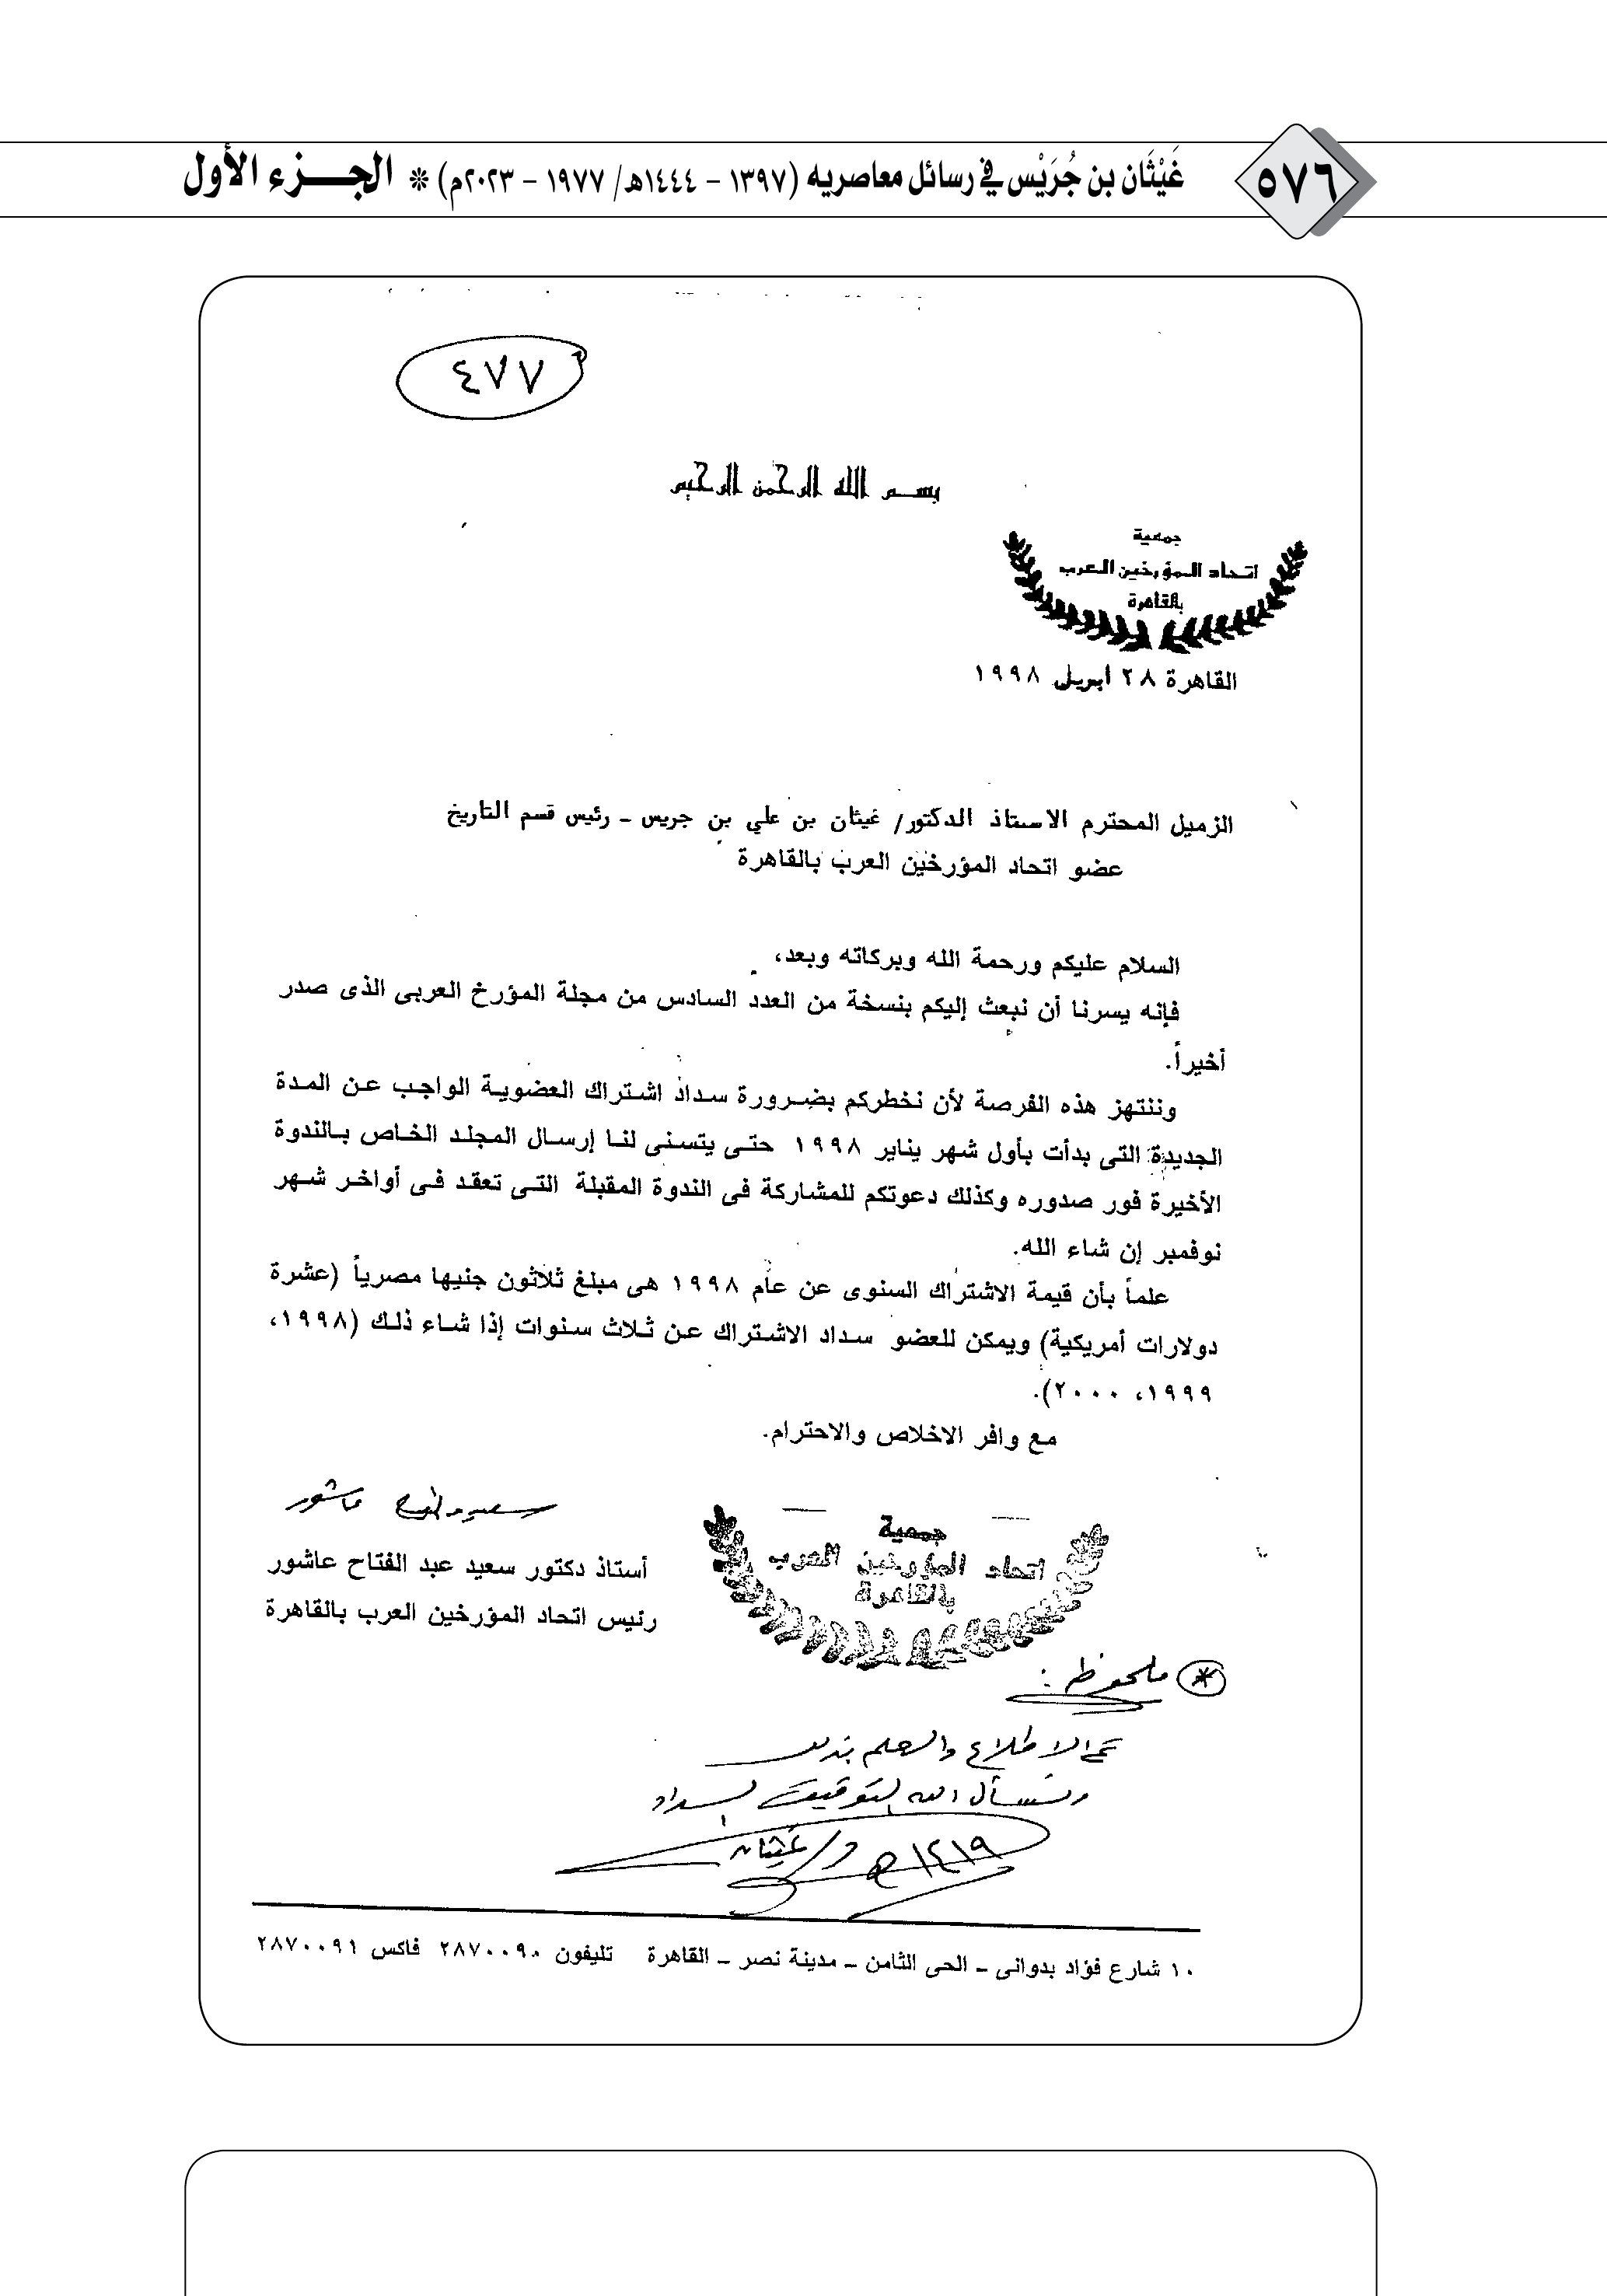 ٥٧٦
غَيْثَان بن جُرَيْس في رسائل معاصريه (١٣٩٧ - ١٤٤٤هـ/ ١٩٧٧ - ٢٠٢٣م) * الجـــزء الأول
٤٧٧
بسم الله الرحمن الرحيم
جمعية
اتحاد المؤرخين العرب
بالقاهرة
القاهرة ٢٨ ابريل ١٩٩٨
الزميل المحترم الاستاذ الدكتور/ غيثان بن علي بن جريس - رئيس قسم التاريخ
عضو اتحاد المؤرخين العرب بالقاهرة
السلام عليكم ورحمة الله وبركاته وبعد،
فإنه يسرنا أن نبعث إليكم بنسخة من العدد السادس من مجلة المؤرخ العربى الذى صدر
أخيراً.
وننتهز هذه الفرصة لأن نخطركم بضرورة سداد اشتراك العضوية الواجب عن المدة
الجديدة التى بدأت بأول شهر يناير ١٩٩٨ حتى يتسنى لنا إرسال المجلد الخاص بالندوة
الأخيرة فور صدوره وكذلك دعوتكم للمشاركة فى الندوة المقبلة التى تعقد فى أواخر شهر
نوفمبر إن شاء الله.
علماً بأن قيمة الاشتراك السنوى عن عام ١٩٩٨ هى مبلغ ثلاثون جنيها مصرياً (عشرة
دولارات أمريكية) ويمكن للعضو سداد الاشتراك عن ثلاث سنوات إذا شاء ذلك (١٩٩٨،
١٩٩٩، ٢٠٠٠).
مع وافر الاخلاص والاحترام.
سعيد عبد الفتاح عاشور
أستاذ دكتور سعيد عبد الفتاح عاشور
رئيس اتحاد المؤرخين العرب بالقاهرة
جمعية
اتحاد المؤرخين العرب
بالقاهرة
* ملحوظة :
تم الاطلاع والعلم بذلك
ونسأل الله التوفيق والسداد
د/ غيثان ١٤١٩هـ
١٠ شارع فؤاد بدوانى - الحى الثامن - مدينة نصر - القاهرة تليفون ٢٨٧٠٠٩٠ فاكس ٢٨٧٠٠٩١